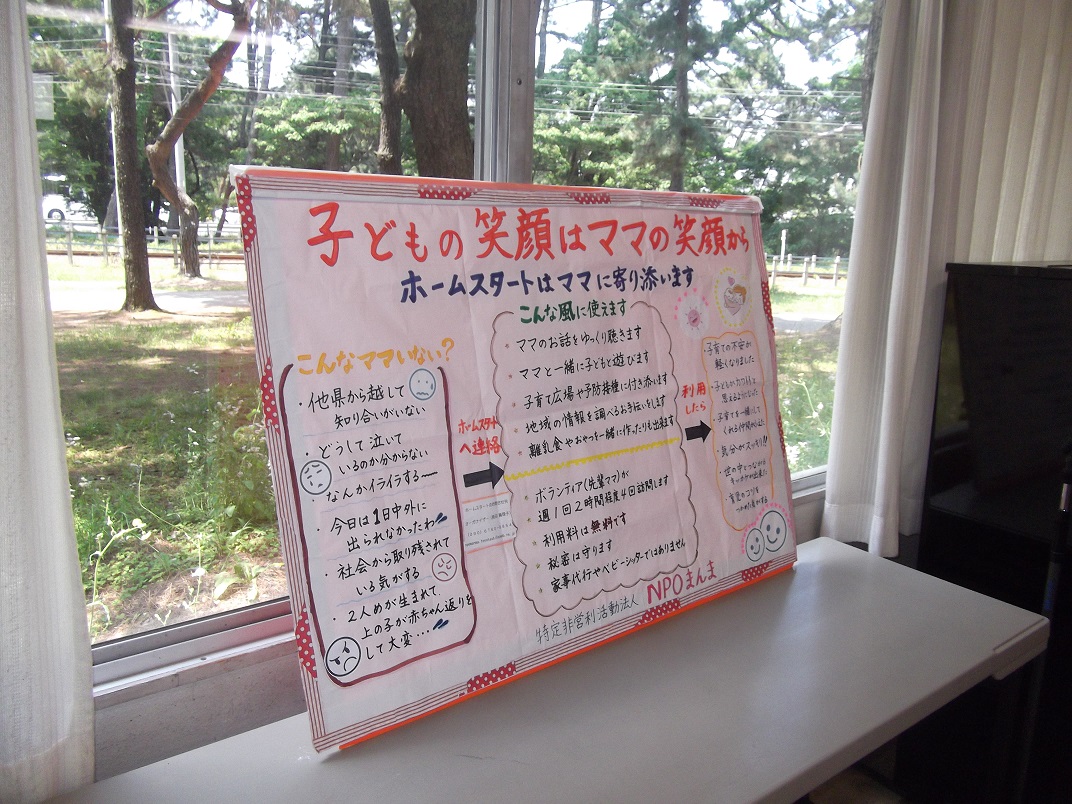 子どもの笑顔はママの笑顔から
ホームスタートはママに寄り添います
こんなママいない?
・他県から越して
知り合いがいない
・どうして泣いて
いるのか分からない
なんかイライラする〜
・今日は1日中外に
出られなかったわ
・社会から取り残されて
いる気がする
・2人めが生まれて
上の子が赤ちゃん返りを
して大変・・・
ホームスタート
へ連絡
こんな風に使えます
ママのお話をゆっくり聴きます
ママと一緒に子どもと遊びます
子育て広場や予防接種に付き添います
地域の情報を調べるお手伝いをします
離乳食やおやつを一緒に作ったりも出来ます
ボランティア(先輩ママ)が
週1回2時間程度4回訪問します
利用料は無料です
秘密は守ります
家事代行やベビーシッターではありません
利用
したら
子育ての不安が
軽くなりました
・子育てを一緒にして
くれる仲間が
・気分がスッキリ!!
特定非営利活動法人 NPOまんま